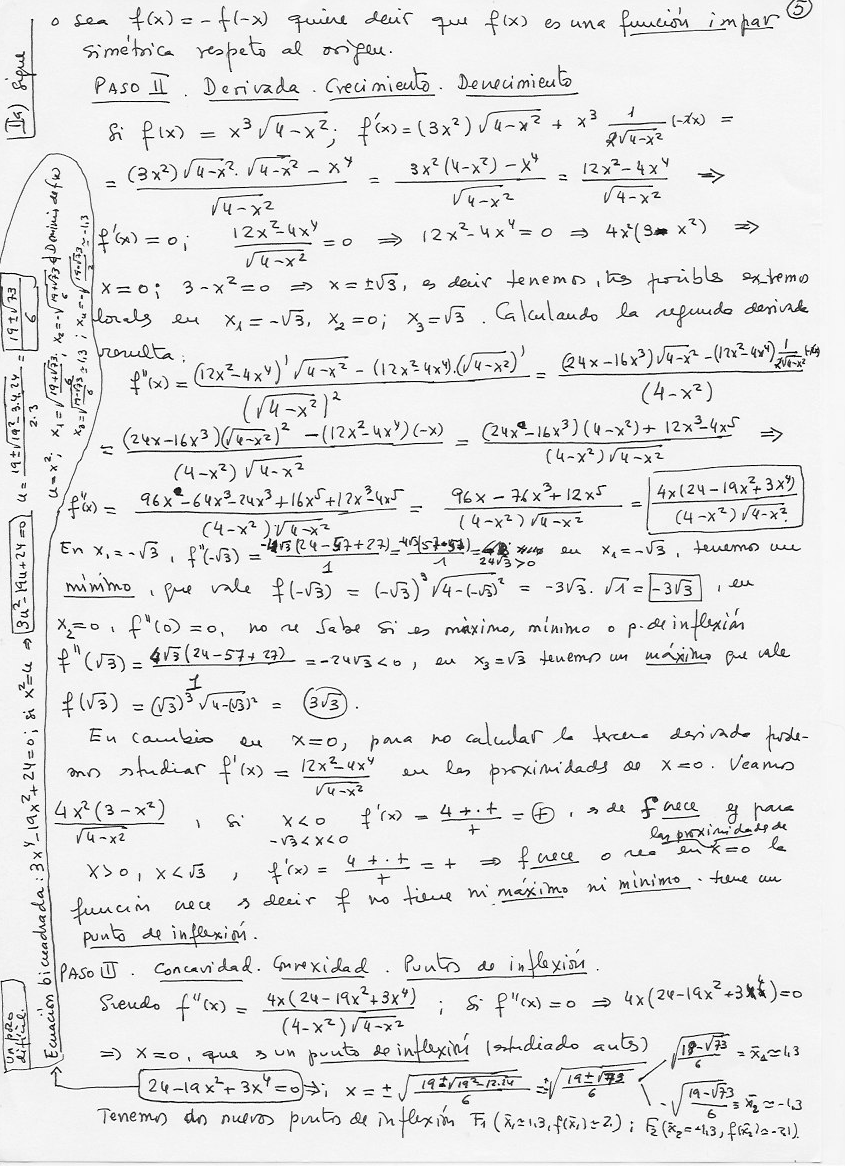 5
o sea f(x) = -f(-x) quiere decir que f(x) es una función impar
simétrica respeto al origen.
PASO II . Derivada . Crecimiento . Decrecimiento
Si f(x) = x³√(4-x²); f'(x) = (3x²)√(4-x²) + x³ 1/(2√(4-x²)) (-2x) =
= ((3x²)√(4-x²)·√(4-x²) - x⁴)/√(4-x²) = (3x²(4-x²) - x⁴)/√(4-x²) = (12x²-4x⁴)/√(4-x²) ⇒
f'(x) = 0; (12x²-4x⁴)/√(4-x²) = 0 ⇒ 12x²-4x⁴ = 0 ⇒ 4x²(3-x²) ⇒
x = 0; 3-x² = 0 ⇒ x = ±√3, es decir tenemos, tres posibles extremos
locales en x₁ = -√3, x₂ = 0; x₃ = √3 . Calculando la segunda derivada
resulta:
f''(x) = ((12x²-4x⁴)'√(4-x²) - (12x²-4x⁴)·(√(4-x²))')/(√(4-x²))² = ((24x-16x³)√(4-x²) - (12x²-4x⁴) 1/(2√(4-x²)) (-2x))/(4-x²)
= ((24x-16x³)(√(4-x²))² - (12x²-4x⁴)(-x))/((4-x²)√(4-x²)) = ((24x-16x³)(4-x²) + 12x³-4x⁵)/((4-x²)√(4-x²)) ⇒
f''(x) = (96x-64x³-24x³+16x⁵+12x³-4x⁵)/((4-x²)√(4-x²)) = (96x-76x³+12x⁵)/((4-x²)√(4-x²)) = 4x(24-19x²+3x⁴)/((4-x²)√(4-x²))
En x₁ = -√3 , f''(-√3) = -4√3(24-57+27)/1 = 24√3>0 en x₁ = -√3 , tenemos un
mínimo , que vale f(-√3) = (-√3)³√(4-(-√3)²) = -3√3·√1 = -3√3 , en
x₂=0 , f''(0) = 0, no se sabe si es máximo, mínimo o p. de inflexión
f''(√3) = 4√3(24-57+27)/1 = -24√3 < 0 , en x₃ = √3 tenemos un máximo que vale
f(√3) = (√3)³√(4-(√3)²) = 3√3 .
En cambio en x=0, para no calcular la tercera derivada pode-
mos estudiar f'(x) = (12x²-4x⁴)/√(4-x²) en las proximidades de x=0. Veamos
4x²(3-x²)/√(4-x²) , si x<0 f'(x) = 4+·+/+ = + , es de f crece y para
-√3<x<0
las proximidades de
x>0, x<√3 , f'(x) = 4+·+/+ = + ⇒ f crece o sea en x=0 la
función crece es decir f no tiene ni máximo ni mínimo. tiene un
punto de inflexión.
PASO III . Concavidad. Convexidad . Puntos de inflexión.
Siendo f''(x) = 4x(24-19x²+3x⁴)/((4-x²)√(4-x²)) ; Si f''(x) = 0 ⇒ 4x(24-19x²+3x⁴)=0
⇒ x=0, que es un punto de inflexión (estudiado antes)
24-19x²+3x⁴=0 ⇒; x = ±√((19±√(19²-12·24))/6) = ±√((19±√73)/6)
√((19-√73)/6) = x̄₁ ≃ 1,3
-√((19-√73)/6) = x̄₂ ≃ -1,3
Tenemos dos nuevos puntos de inflexión F₁(x̄₁≃1,3, f(x̄₁)≃2.) ; F₂(x̄₂=-1,3, f(x̄₂)≃-2.)
IIa) Sigue
Un paso difícil.
Ecuación bicuadrada: 3x⁴-19x²+24=0; si x²=u ⇒ 3u²-19u+24=0 u = (19±√(19²-3.4.24))/2.3 = (19±√73)/6
u=x²; x₁=√((19+√73)/6), x₂=-√((19+√73)/6) ∉ Dominio de f(x)
x₃=√((19-√73)/6)≃1,3 ; x₄=-√((19-√73)/6)≃-1,3